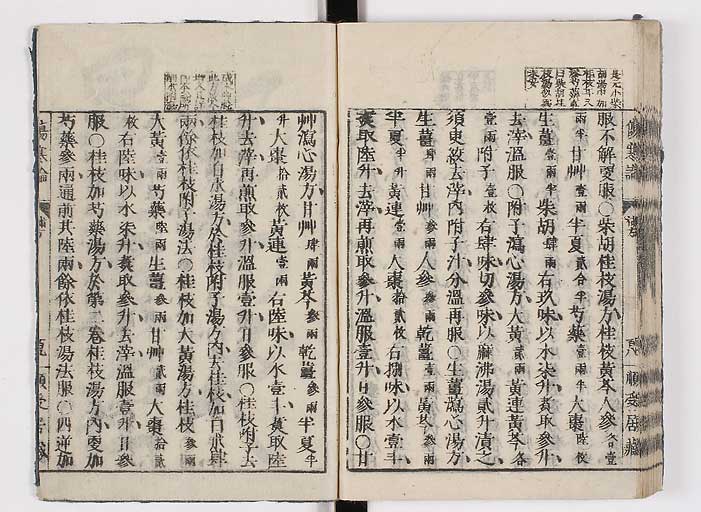 服不解更服○柴胡桂枝湯方桂枝黃芩人參各壹
兩半甘艸壹兩半夏貳合半芍藥壹兩半大棗陸枚
生薑壹兩半柴胡肆兩右玖味以水柒升煑取參升
去滓溫服○附子瀉心湯方大黃貳兩黃連黃芩各
壹兩附子壹右肆味切參味以麻沸湯貳升漬之
須臾絞去滓內附子汁分溫再服○生薑瀉心湯方
生薑肆兩甘艸參兩人參參兩乾薑壹兩黃芩參兩
半夏半升黃連壹兩大棗拾貳枚右捌味以水壹斗
煑取陸升去滓再煎取參升溫服壹升日參服○甘
艸瀉心湯方甘艸肆兩黃芩參兩乾薑參兩半夏半
升大棗拾貳枚黃連壹兩右陸味以水壹斗煑取陸
升去滓再煎取參升溫服壹升日參服○桂枝附子去
桂枝加白朮湯方於桂枝附子湯方內去桂枝加白朮肆
兩餘依桂枝附子湯法○桂枝加大黃湯方桂枝參兩
大黃壹兩芍藥陸兩生薑參兩甘艸貳兩大棗拾貳
枚右陸味以水柒升煑取參升去滓溫服壹升日參
服○桂枝加芍藥湯方於第二卷桂枝湯方內更加
芍藥參兩通前共陸兩餘依桂枝湯法服○四逆加
傷寒論